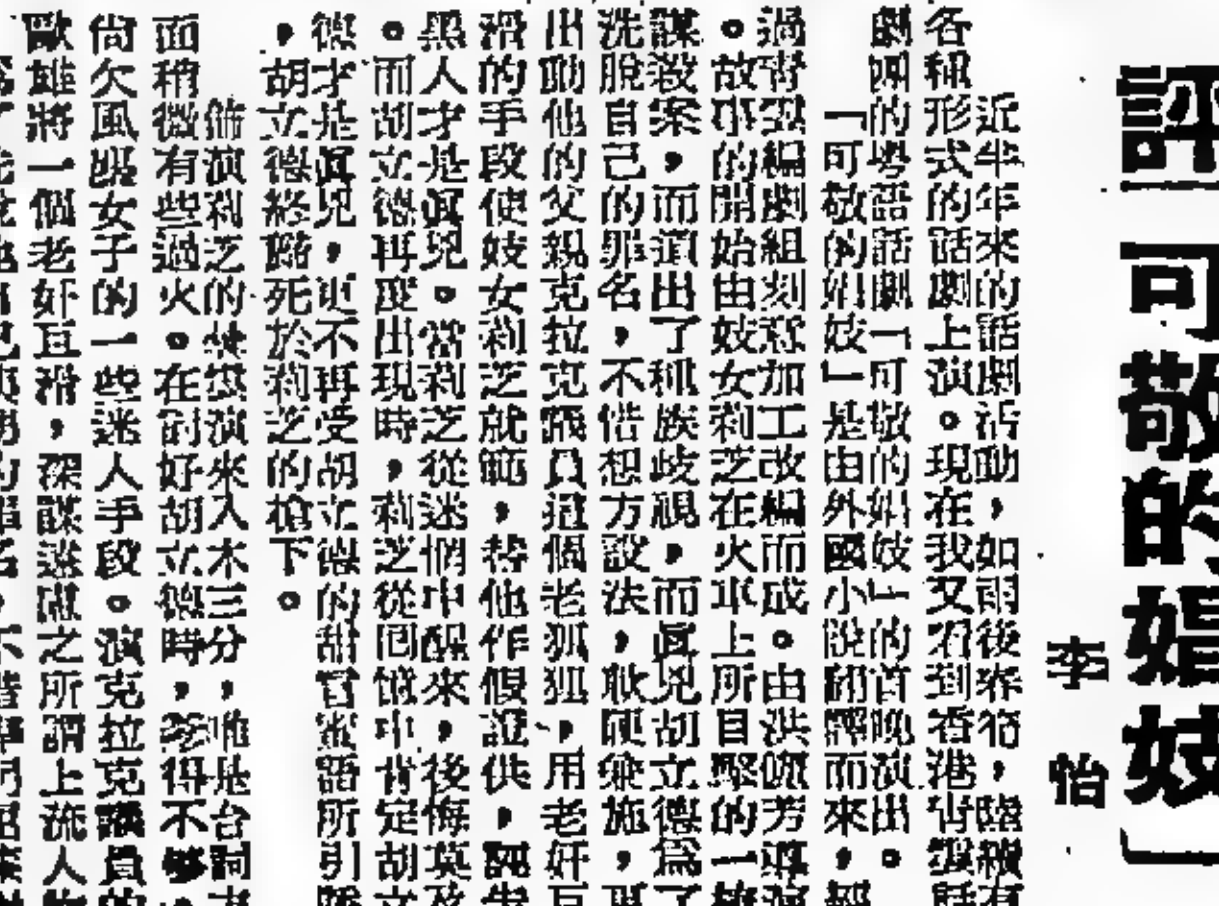 評「可敬的娼妓」
李怡
近半年來的話劇活動,如雨後春筍,臨續有
各種形式的話劇上演。現在我又看到香港靑盟話
劇團的粵語話劇「可敬的娼妓」的首晚演出。
「可敬的娼妓」是由外國小說翻譯而來,經
過靑盟編劇組刻意加工改編而成。由洪
芳導演
。故事的開始由妓女莉芝在火車上所目擊的一樁
謀殺案,而道出了種族歧視,而眞兇胡立德爲了
洗脫自己的罪名,不惜想方設法,軟硬兼施,更
出動他的父親克拉克議員這個老狐狸,用老奸巨
滑的手段使妓女莉芝就範,替他作假證供,誣告
黑人才是眞兇。當莉芝從迷惘中醒來,後悔莫及
。而胡立德再度出現時,莉芝從回憶中肯定胡立
德才是眞兇,更不再受胡立德的甜言蜜語所引誘
,胡立德終於死於莉芝的槍下。
飾演莉芝的
演來入木三分,唯是台詞方
面稍微有些過火。在討好胡立德時,
得不夠,
尙欠風騷女子的一些迷人手段。演克拉克議員的
歐雄將一個老奸巨滑,深謀遠慮之所謂上流人物